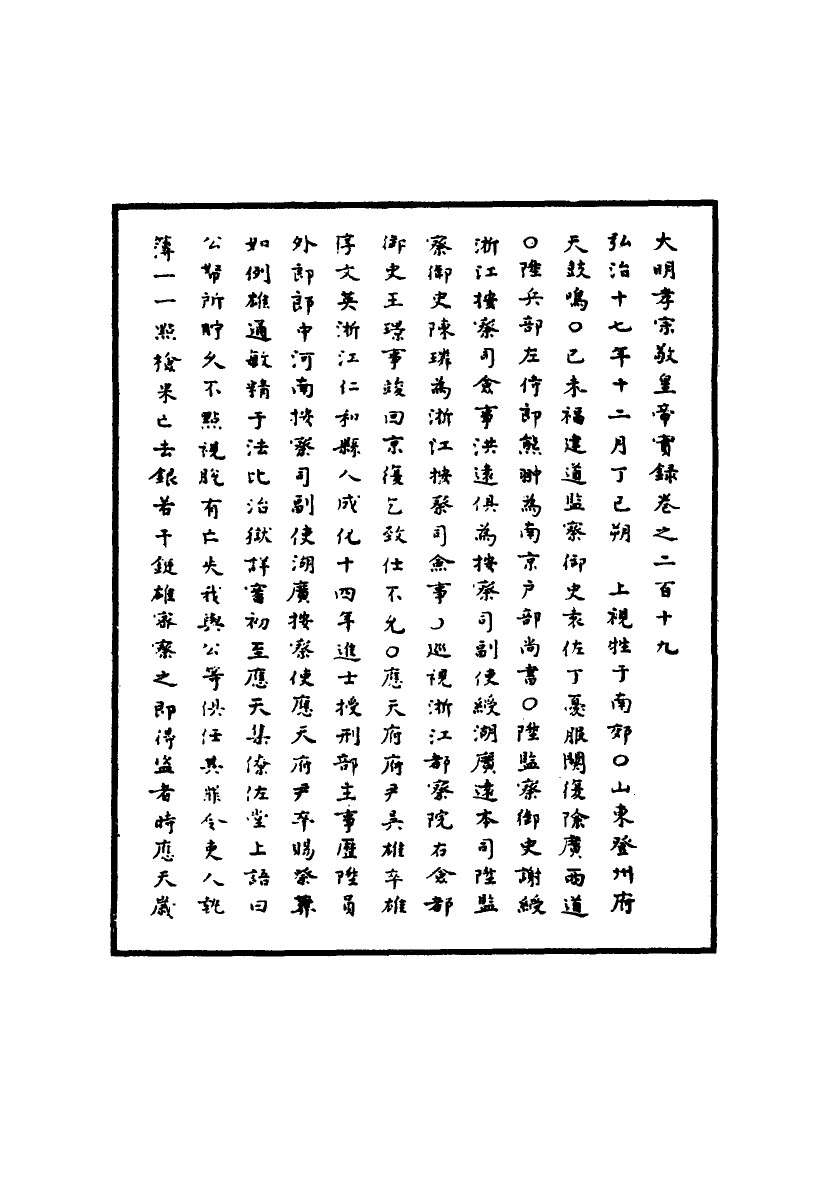 大明孝宗敬皇帝實錄卷之二百十九
弘治十七年十二月丁巳朔　上視牲于南郊○山東登州府
天鼓鳴○己未福建道監察御史袁佐丁憂服闋復除廣西道
○陞兵部左侍郎熊翀為南京戶部尚書○陞監察御史謝綬
浙江按察司僉事洪遠俱為按察司副使綬湖廣遠本司陞監
察御史陳璘為浙江按察司僉事○巡視浙江都察院右僉都
御史王璟事竣回京復乞致仕不允○應天府府尹吳雄卒雄
字文英浙江仁和縣人成化十四年進士授刑部主事歷陞員
外郎郎中河南按察司副使湖廣按察使應天府尹卒賜祭葬
如例雄通敏精于法比治獄詳審初至應天集僚佐堂上語曰
公帑所貯久不點視脫有亡失我與公等俱任其罪令吏人執
簿一一點檢果亡去銀若干鋌雄密察之即得盜者時應天歲